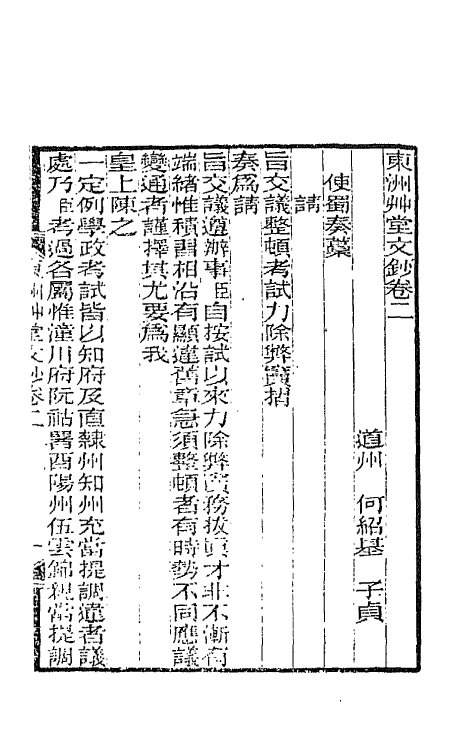 東洲艸堂文鈔卷二
道州 何紹基 子貞
使蜀奏藁
請
旨交議整頓考試力除弊竇摺
奏爲請
旨交議遵辦事臣自按試以來力除弊竇務拔眞才非不漸有
端緒惟積習相沿有顯違舊章急須整頓者有時勢不同應議
變通者謹擇其尤要爲我
皇上陳之
一定例學政考試皆以知府及直隸州知州充當提調違者議
處乃臣考過各屬惟潼川府阮祜署酉陽州伍雲錦親當提調
東洲艸堂文鈔卷二
一